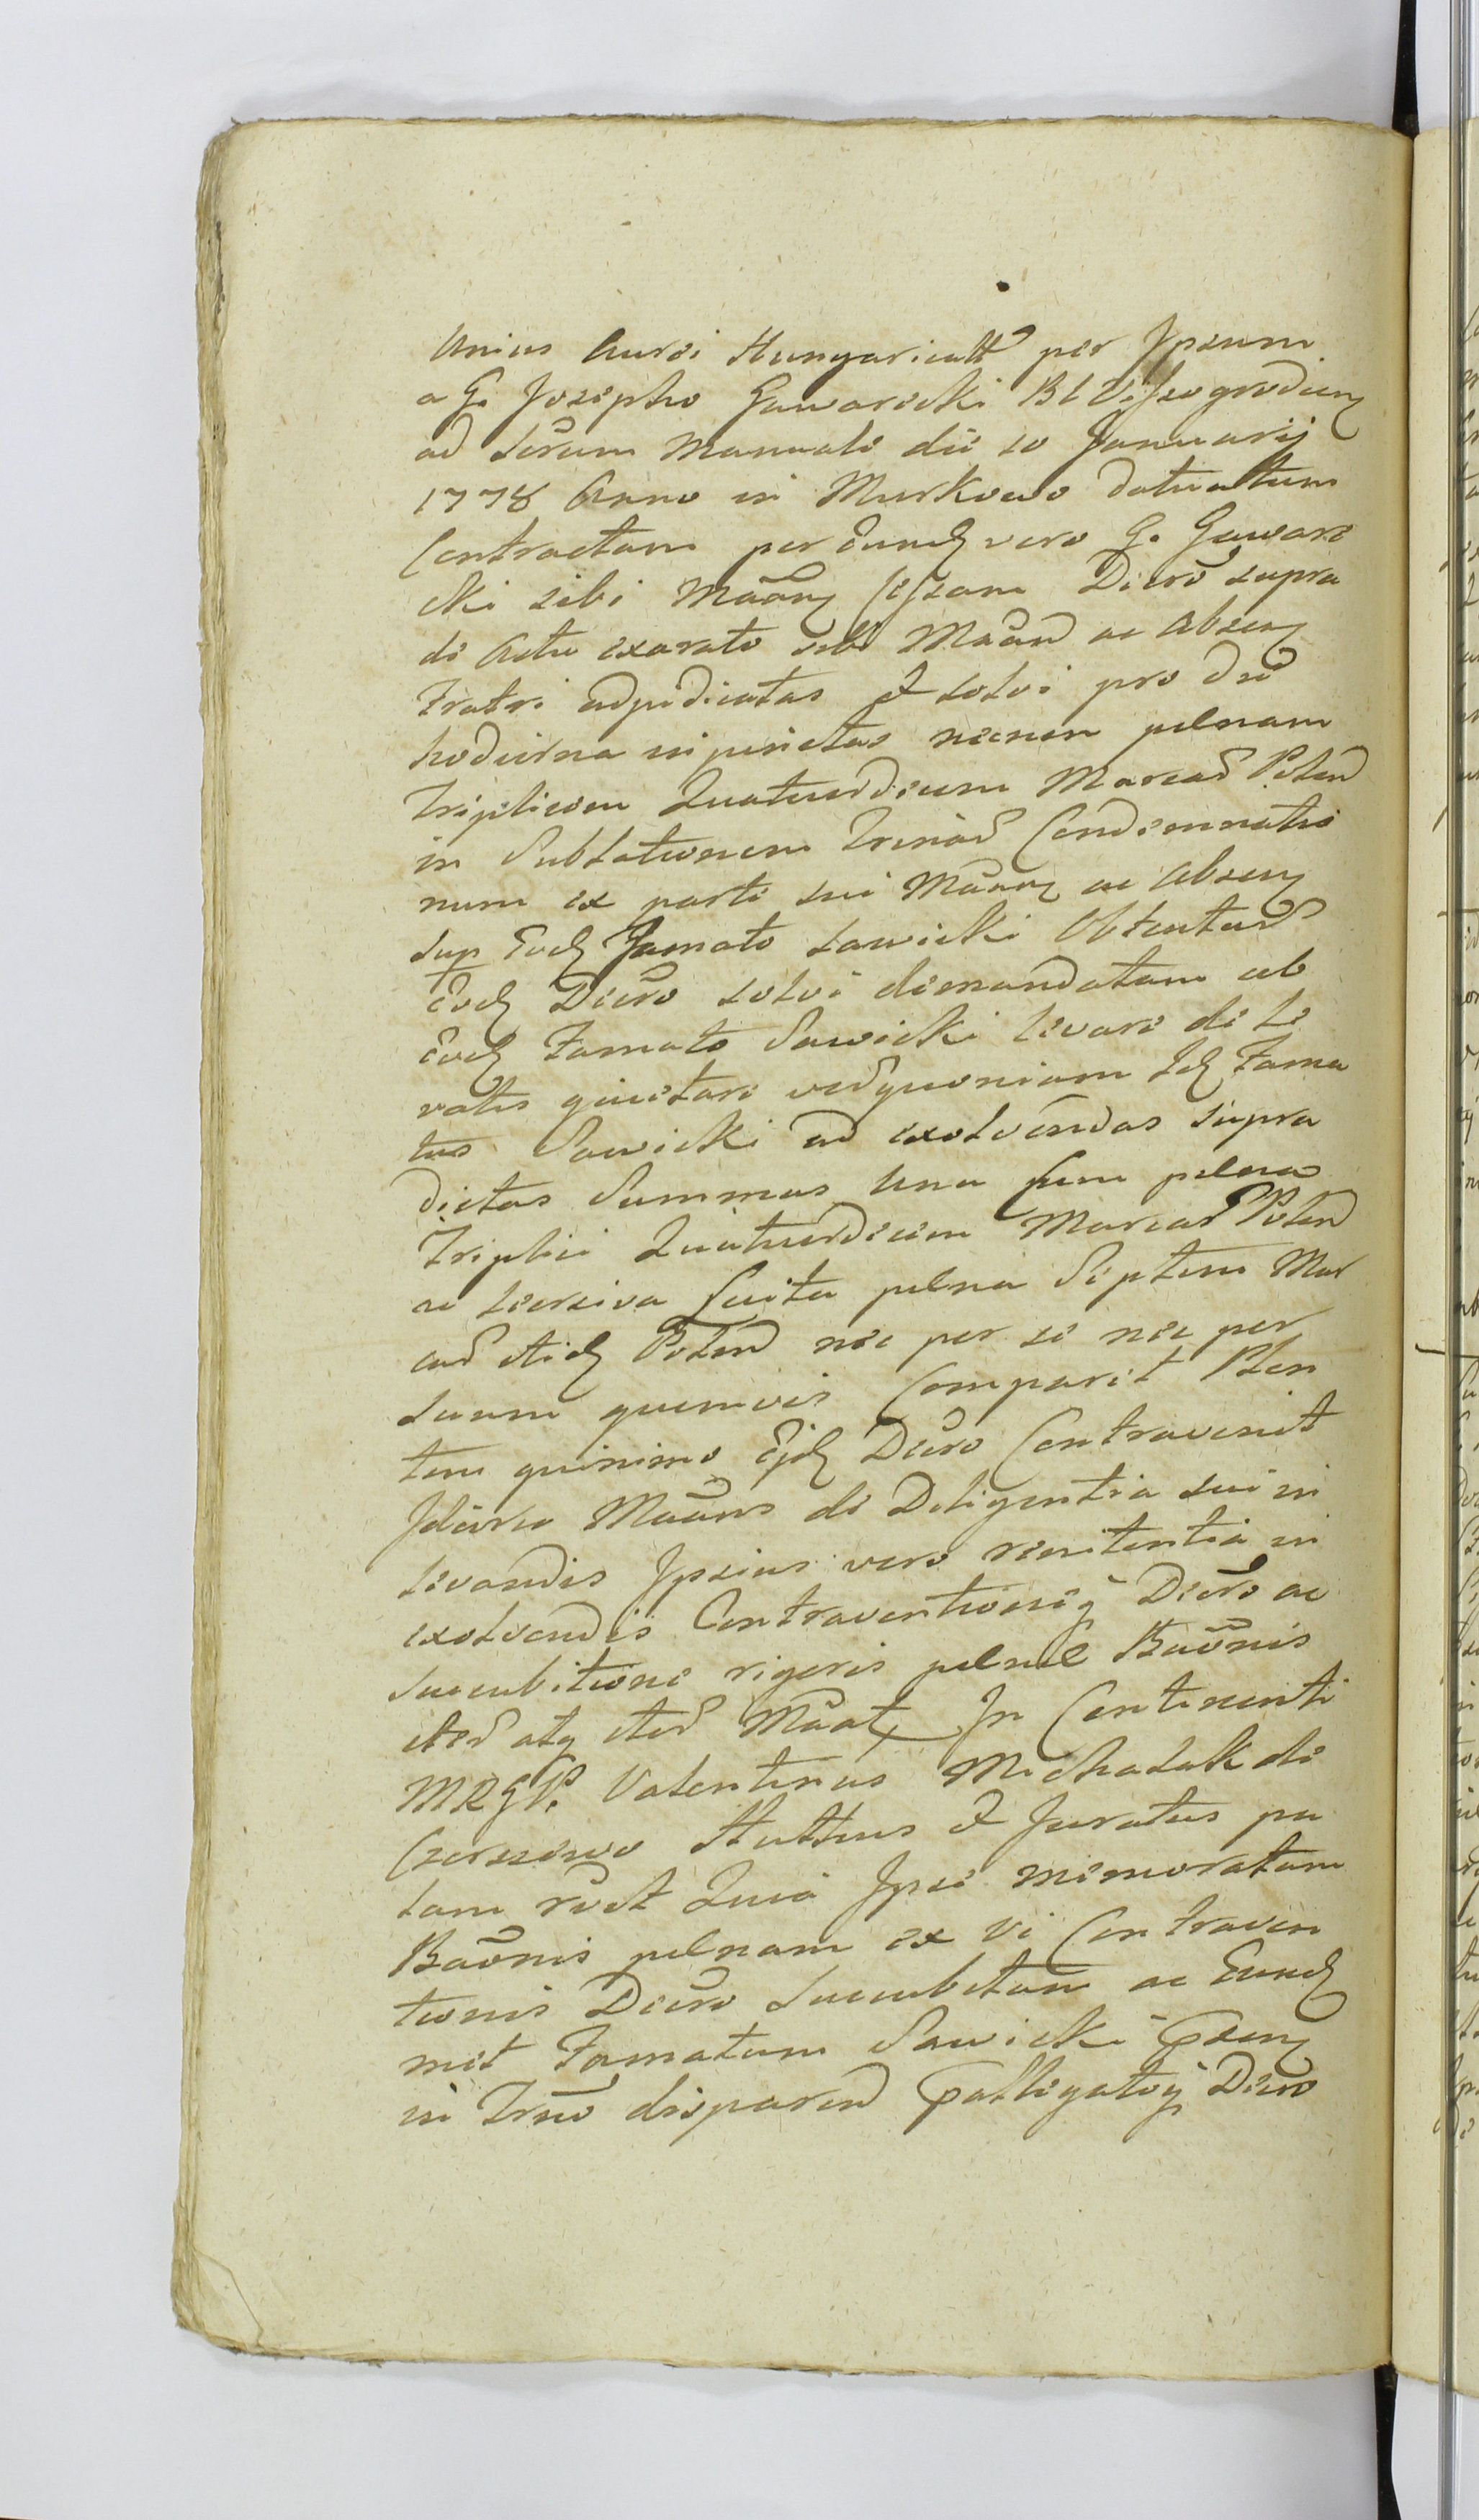 Unius Aurei Hungaricatt per Ipsum
a G. Josepho Gawarecki B C Wyszogrodien
ad Scrum Manuale die 10 Januarij
1778 Anno in Murkowo datuatum
Contractam per Eund vero G. Gaware
cki sibi Maan Cessam Decro supra
de Actu exarato sibi Maan ac Absen
Fratri adjudicatas & solvi pro die
hodierna injunctas necnon pelnam
Triplicem Quatuordecim Marcar Polon
in Sublationem Trinar Condemnatio
num ex parte sui Maan ac Absen
sup Eod Famato Sawicki Obtentar
Eod Decro solvi demandatam ab
Eod Famato Sawicki levare de le
vatis quietare vedquoniam Id Fama
tus Sawicki ad exolvendas supra
dictas Summas una cum pelna
Triplici Quatuordecim Marcar Polon
ac lucrosiva Luita pelna Septem Mar
car itid Polon nec per se nec per
suum quemvis Comparet Plen
tem quinimo Ejd Decro Contravenit
Idcirco Maans de Deligentia sui in
levandis Ipsius vero renitentia in
exolvendis Contraventioneq Decro ac
succubitione rigoris pelnae Baonis
ited atq ited Maat In Continenti
MRGP. Valentinus Michalak de
Czerniewo Scultetus & Juratus pa
lam rect Quia Ipse memoratam
Baonis pelnam ex Vi Contraven
tionis Decro succubitam ac Eund
met Famatum Sawicki Psen
in Trno disparen Patligatoq Decro